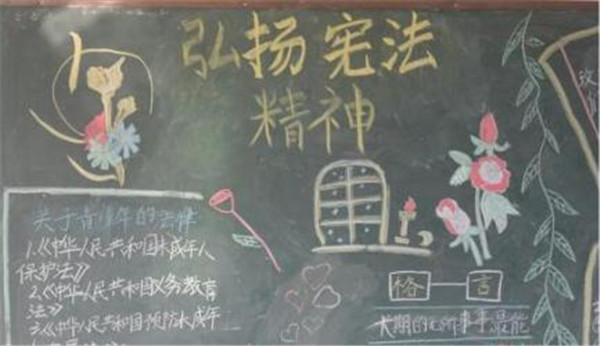 弘扬宪法
精神
关于青少年的法律
1.《中华人民共和国未成年人
保护法》
2.《中华人民共和国义务教育
法》
3.《中华人民共和国预防未成年
格言
长期的无所事事最能